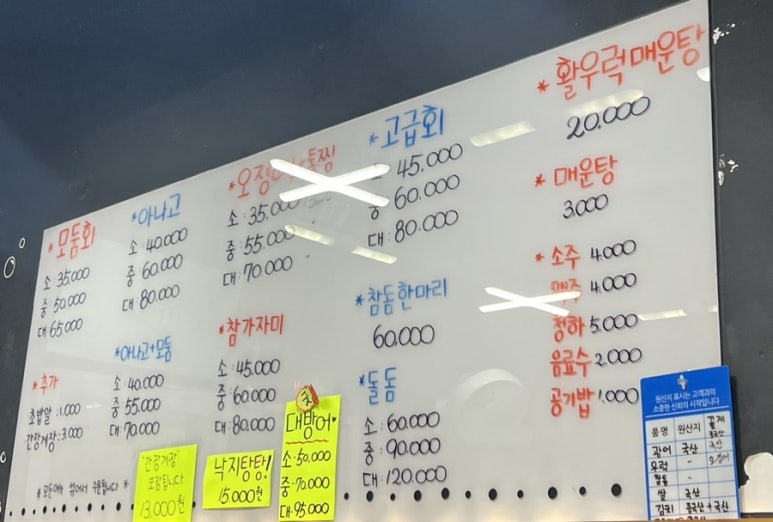 *모둠회
소: 35.000
중: 50.000
대: 65.000
*추가
초밥알: 1.000
간장게장: 3.000
*아나고
소: 40.000
중: 60.000
대: 80.000
*아나고+모둠
소: 40.000
중: 55.000
대: 70.000
소: 35.000
중: 55.000
대: 70.000
*참가자미
소: 45.000
중: 60.000
대: 80.000
*고급회
45.000
중 60.000
대: 80.000
*참돔한마리
60.000
*돌돔
소: 60.000
중: 90.000
대: 120.000
*활우럭매운탕
20.000
*매운탕
3.000
*소주 4.000
4.000
청하 5.000
음료수 2.000
공기밥 1.000
"간장게장"
포장됩니다
13.000원
낙지탕탕!
15.000원
대방어*
소: 50.000
중: 70.000
대: 95.000
원산지 표시는 고객과의
소중한 신뢰의 시작입니다
품명 원산지
광어 국산
우럭 "
쌀 국산
김치 중국산+국산